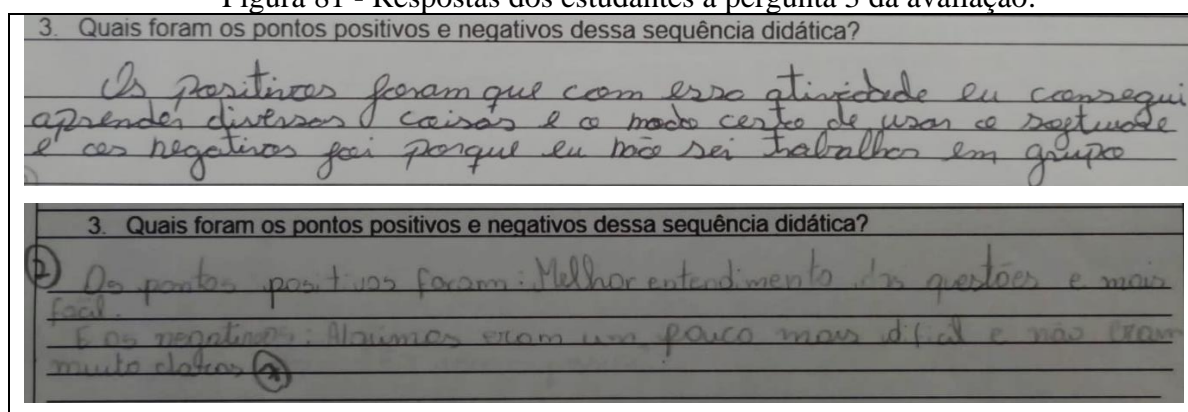 Figura 81 - Respostas dos estudantes à pergunta 3 da avaliação.
3. Quais foram os pontos positivos e negativos dessa sequência didática?
Os positivos foram que com essa atividade eu consegui
aprender diversas coisas e o modo certo de usar o software
e os negativos foi porque eu não sei trabalhar em grupo
3. Quais foram os pontos positivos e negativos dessa sequência didática?
2 Os pontos positivos foram: Melhor entendimento das questões e mais
facil.
E os negativos: Algumas eram um pouco mais dificil e não eram
muito claras